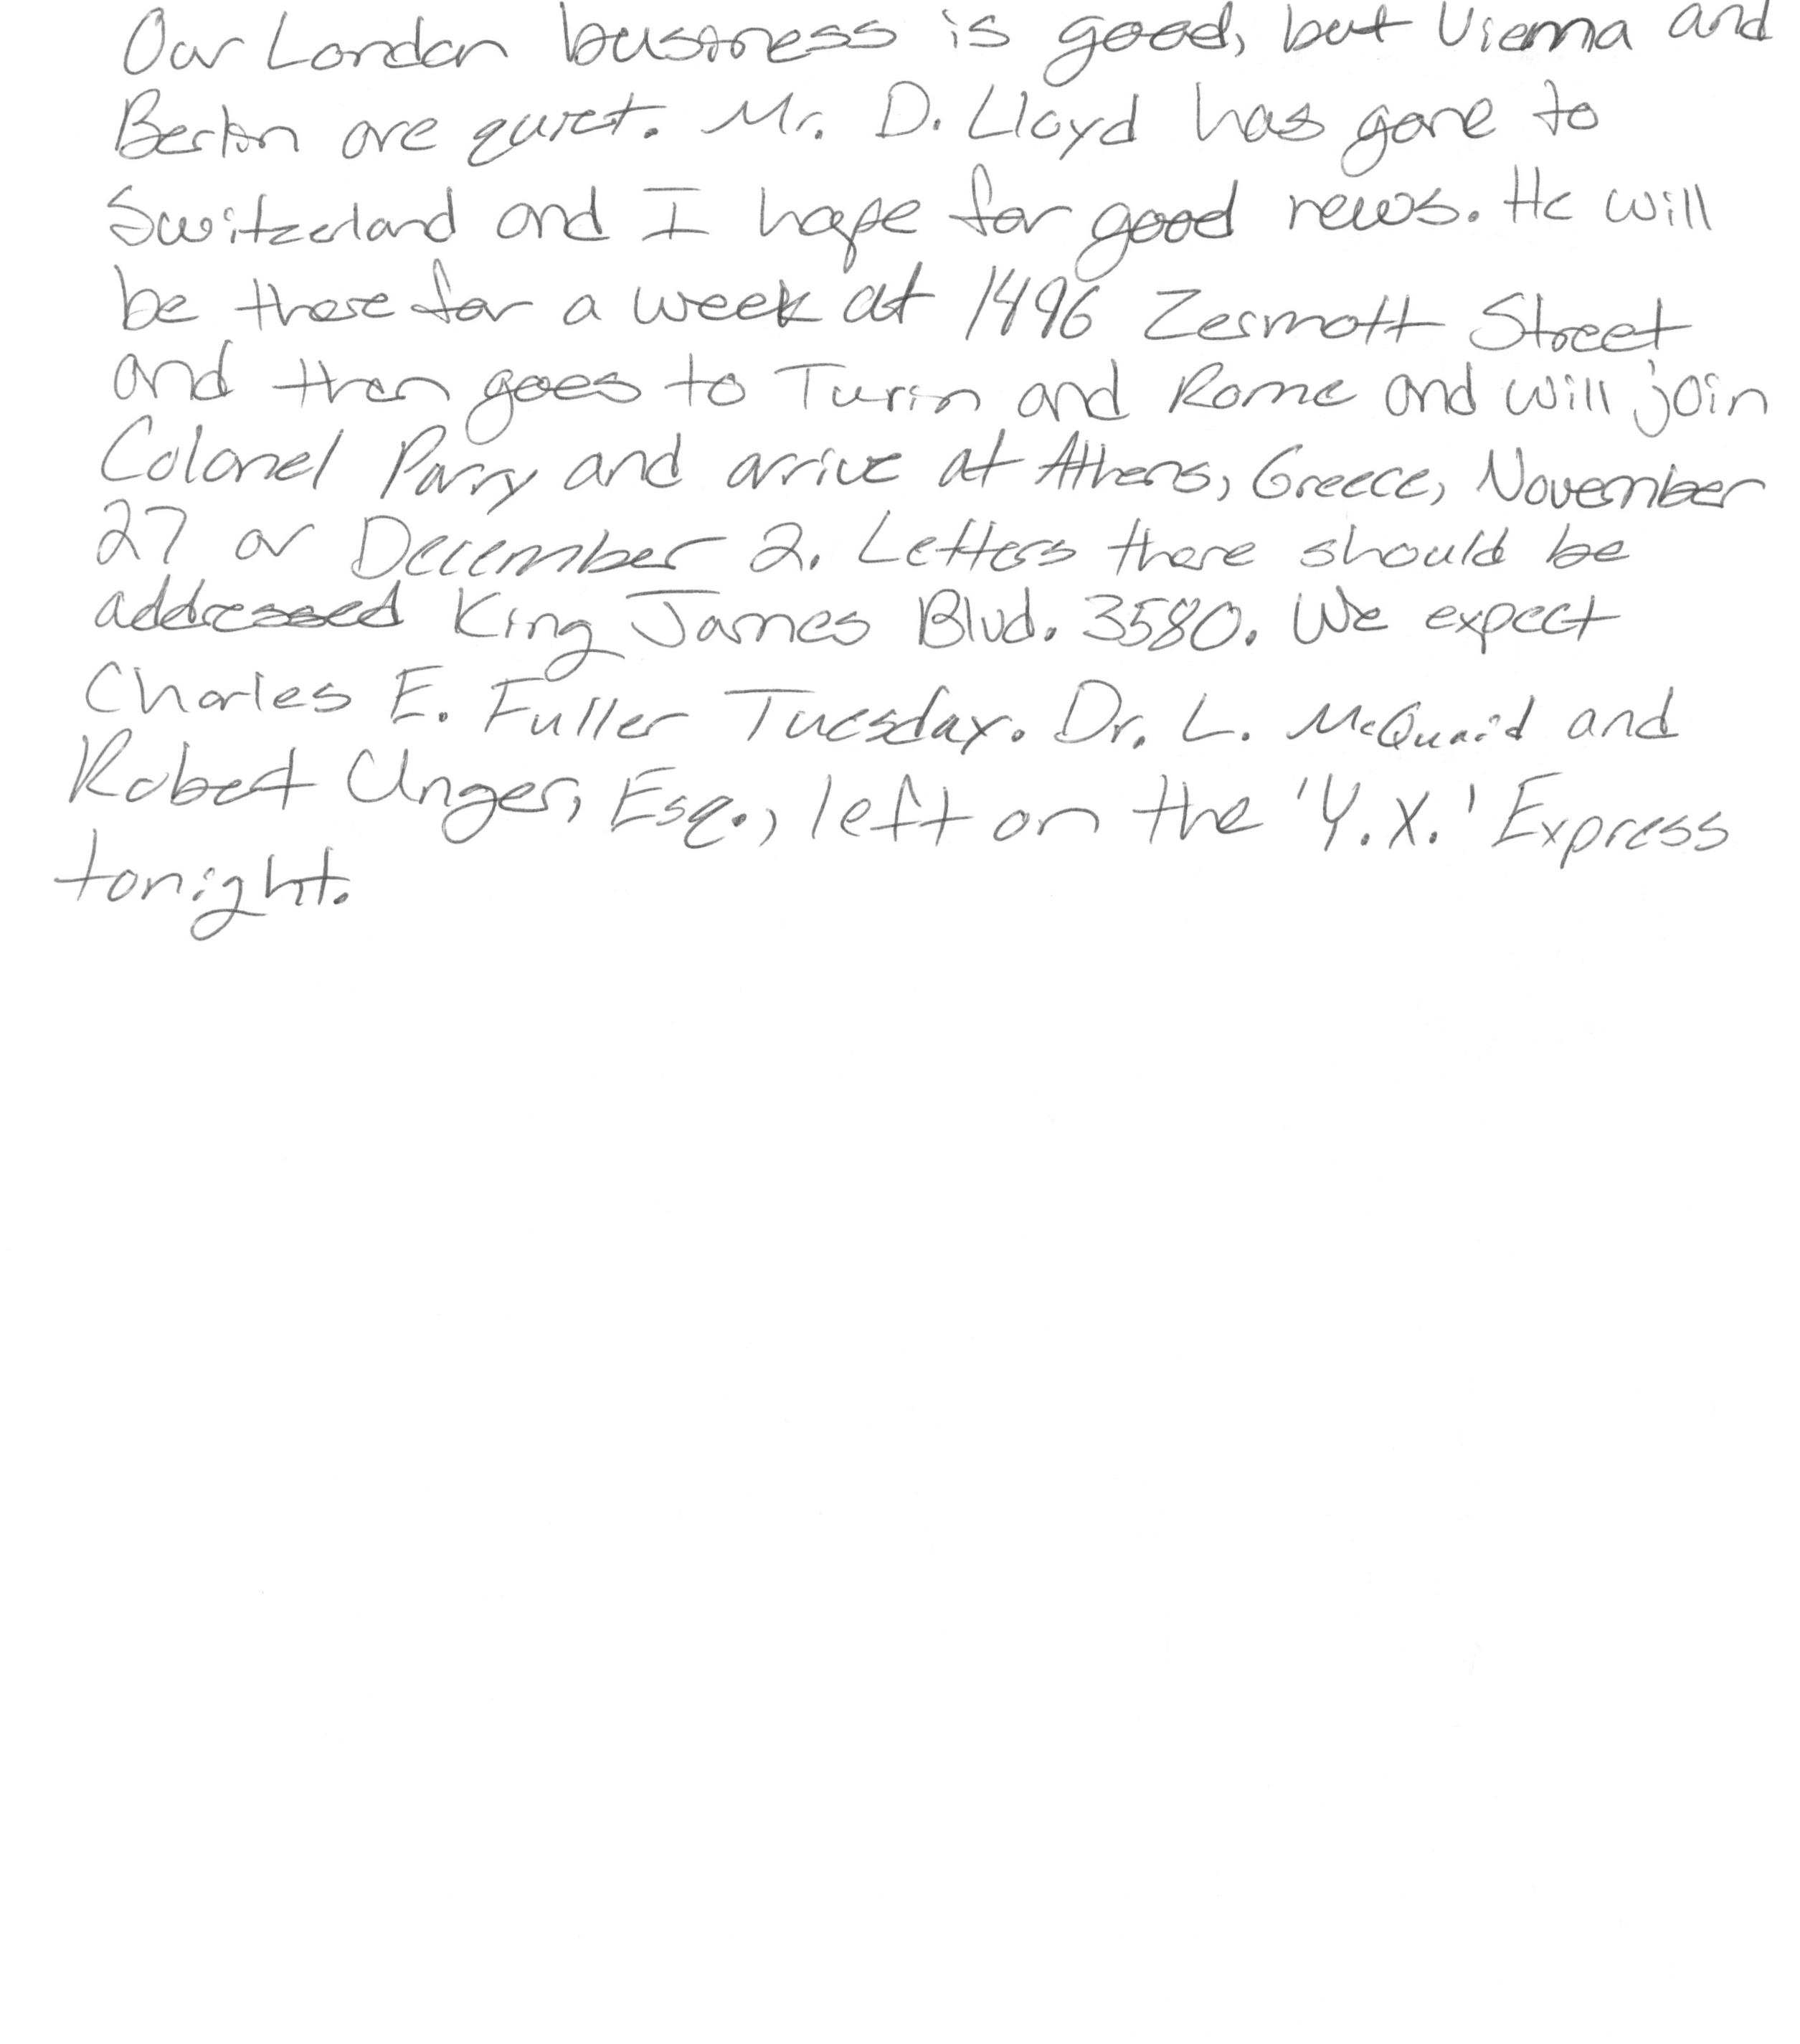 Our London business is good, but Vienna and
Berlin are quiet. Mr. D. Lloyd has gone to
Switzerland and I hope for good news. He will
be there for a week at 1496 Zermott Street
and then goes to Turin and Rome and will join
Colonel Parry and arrive at Athens, Greece, November
27 or December 2. Letters there should be
addressed King James Blvd. 3580. We expect
Charles E. Fuller Tuesday. Dr. L. McQuaid and
Robert Unger, Esq., left on the 'Y.X.' Express
tonight.